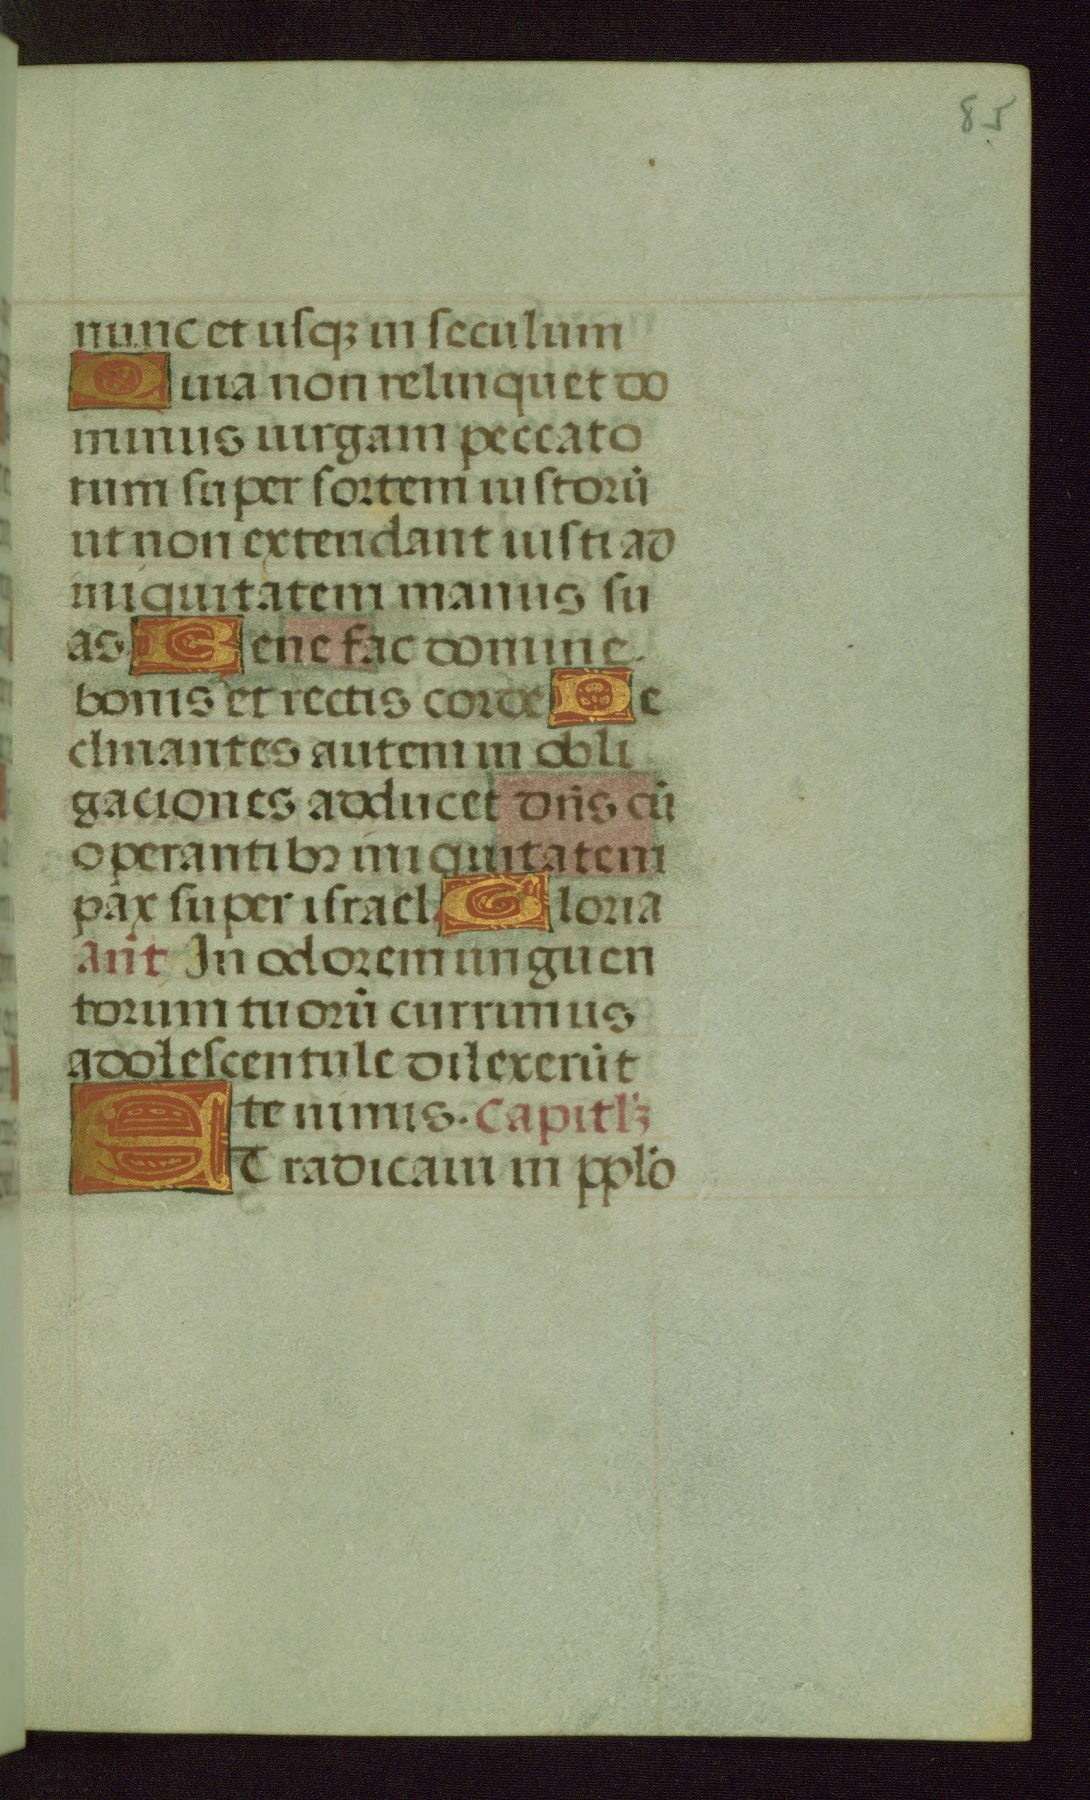 85
nunc et usqꝫ in seculum
Quia non relinquet do
minus uirgam peccato
rum super sortem iustorū
ut non extendant iusti ad
iniquitatem manus su
as Bene fac domine
bonis et rectis corde De
clinantes autem in obli
gaciones adducet dn̄s cū
operantibꝰ iniquitatem
pax super israel Gloria
An̄t In odorem unguen
torum tuorū currimus
adolescentule dilexerūt
te nimis. Capitlꝫ
Et radicaui in pplo